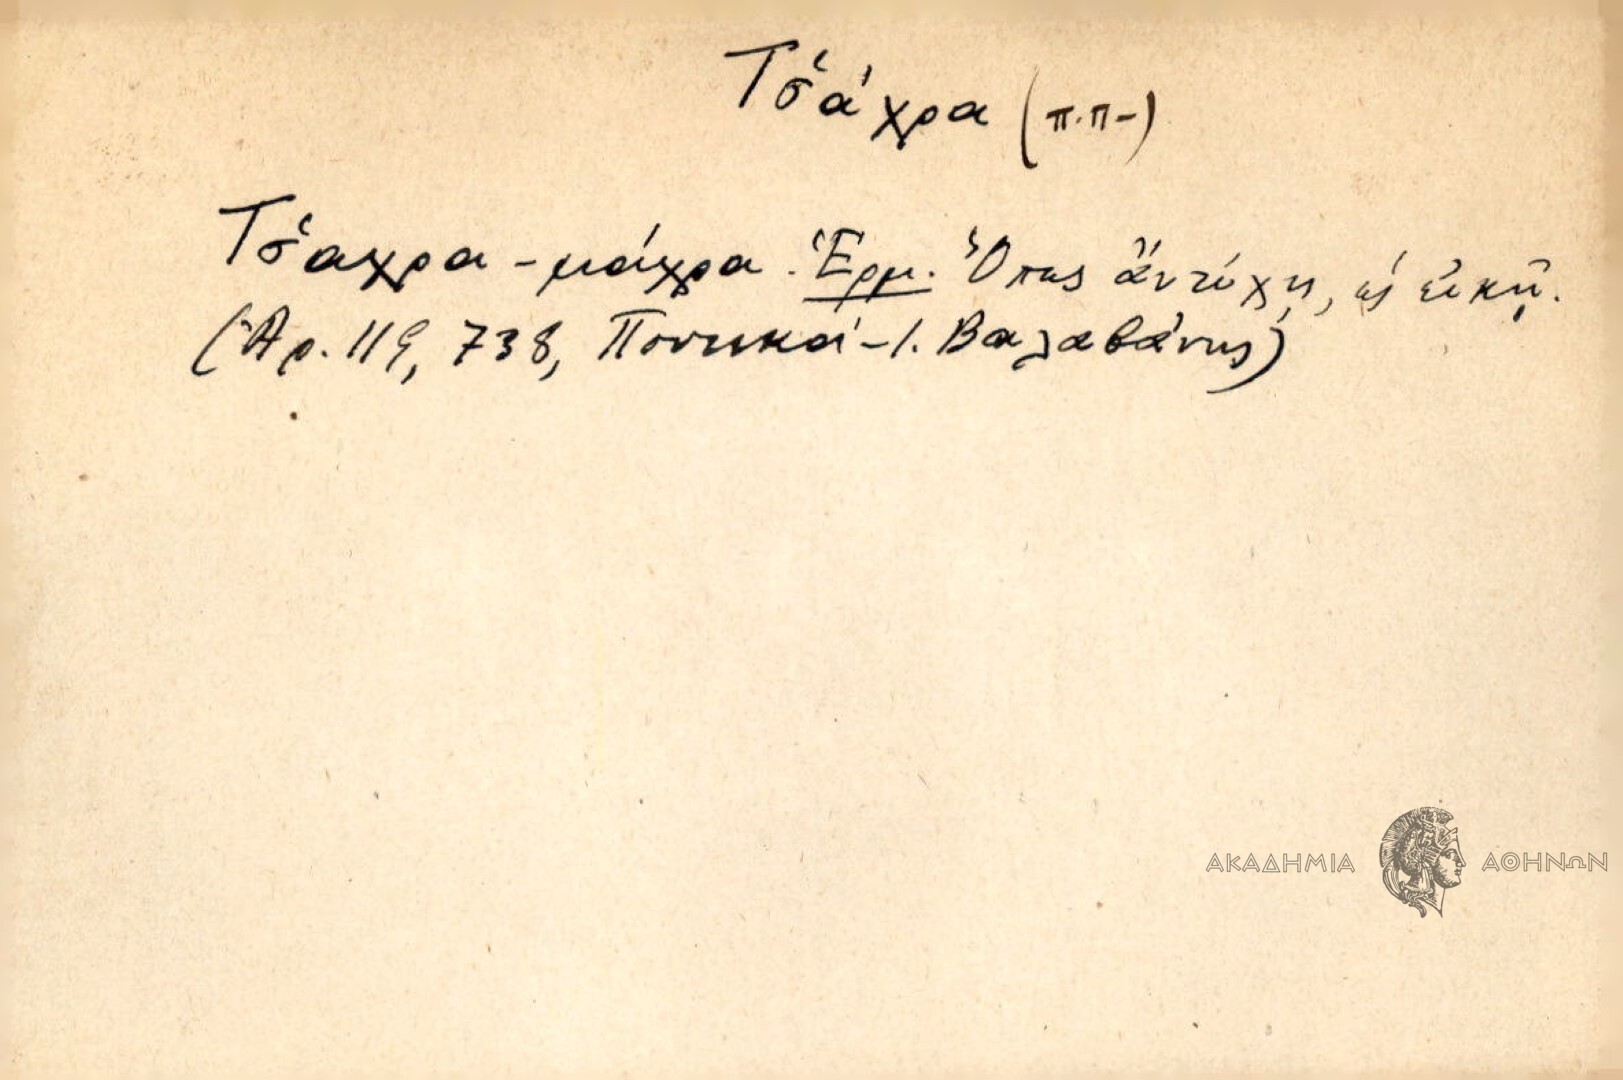 Τσ̌άχρα (π.π-)
Τσ̌αχρα -μάχρα. Ἑρμ. Ὅπως ἂν τύχῃ, ὡς εἰκῇ.
(Ἀρ. 119, 738, Ποντικά - Ι. Βαλαβάνης)
ΑΚΑΔΗΜΙΑ ΑΘΗΝΩΝ